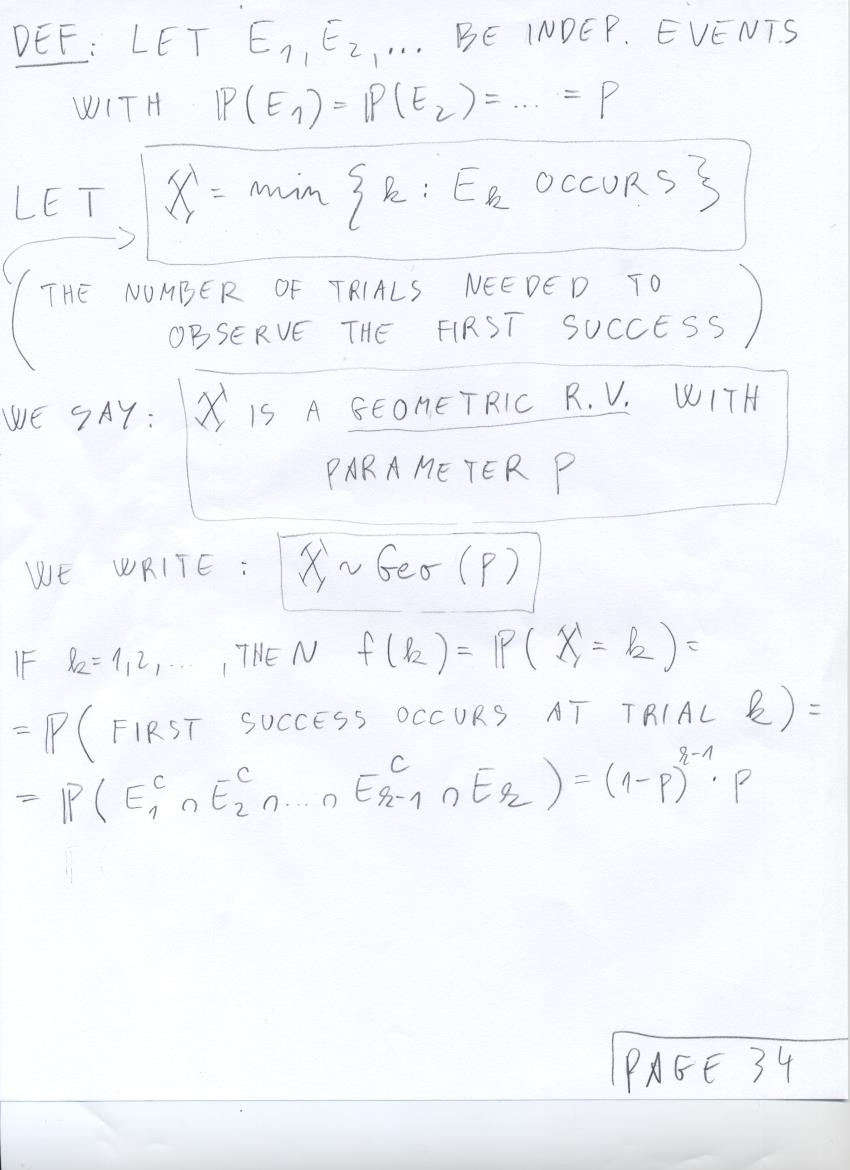 DEF: LET E₁, E₂, ... BE INDEP. EVENTS
WITH ℙ(E₁) = ℙ(E₂) = ... = P
LET X = min { k : E_k OCCURS }
(THE NUMBER OF TRIALS NEEDED TO
OBSERVE THE FIRST SUCCESS)
WE SAY: X IS A GEOMETRIC R.V. WITH
PARAMETER P
WE WRITE : X ~ Geo (P)
IF k=1,2,... , THEN f(k) = ℙ( X = k ) =
= ℙ( FIRST SUCCESS OCCURS AT TRIAL k ) =
= ℙ( E₁ᶜ ∩ E₂ᶜ ∩ ... ∩ E_{k-1}ᶜ ∩ E_k ) = (1-P)^{k-1} · P
PAGE 34